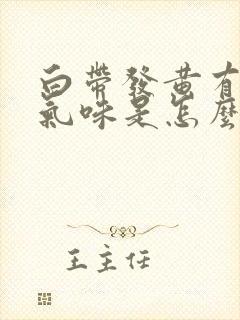 白帶發黄有
氣味是怎麼
王主任